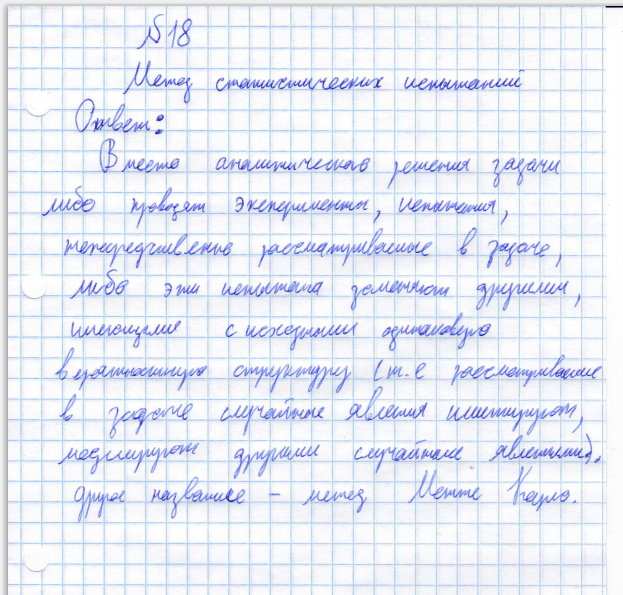 №18
Метод статистических испытаний
Ответ:
Вместо аналитического решения задачи
либо проводят эксперименты, испытания,
непосредственно рассматриваемые в задаче,
либо эти испытания заменяют другими,
имеющими с исходными одинаковую
вероятностную структуру (т.е рассматриваемые
в задаче случайные явления имитируют,
моделируют другими случайными явлениями).
другое название – метод Монте Карло.